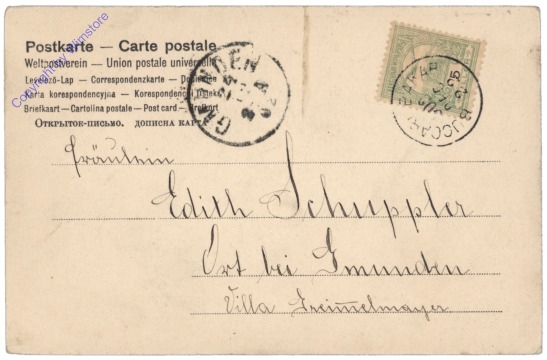 Copyright by filmstore
Postkarte — Carte postale
Weltpostverein — Union postale universelle
Levelező-Lap — Correspondenzkarte — Dopisnice
Karta korespondencyjna — Korespondenční lístek
Briefkaart — Cartolina postale — Post card — Brefkort
Открытое письмо. дописна карта
GMUNDEN
BUCCARI BAKAR
Fräulein
Edith Schuppler
Ort bei Gmunden
Villa Greimelmayer